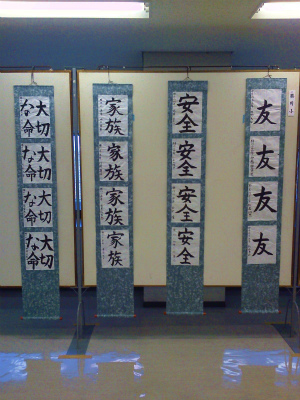 友
友
友
友
安全
安全
安全
安全
家族
家族
家族
家族
大切
な命
大切
な命
大切
な命
大切
な命